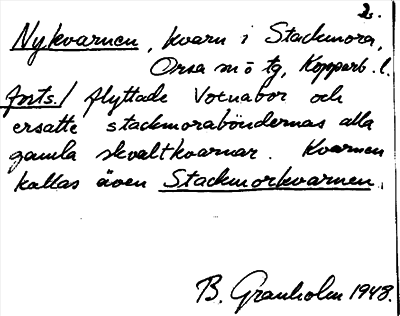 2.
Nykvarnen, kvarn i Stackmora,
Orsa sn ö tg, Kopparb. l.
forts./ flyttade Votnabor och
ersatte stackmoraböndernas alla
gamla skvaltkvarnar. Kvarnen
kallas även Stackmorkvarnen.
B. Granholm 1948.